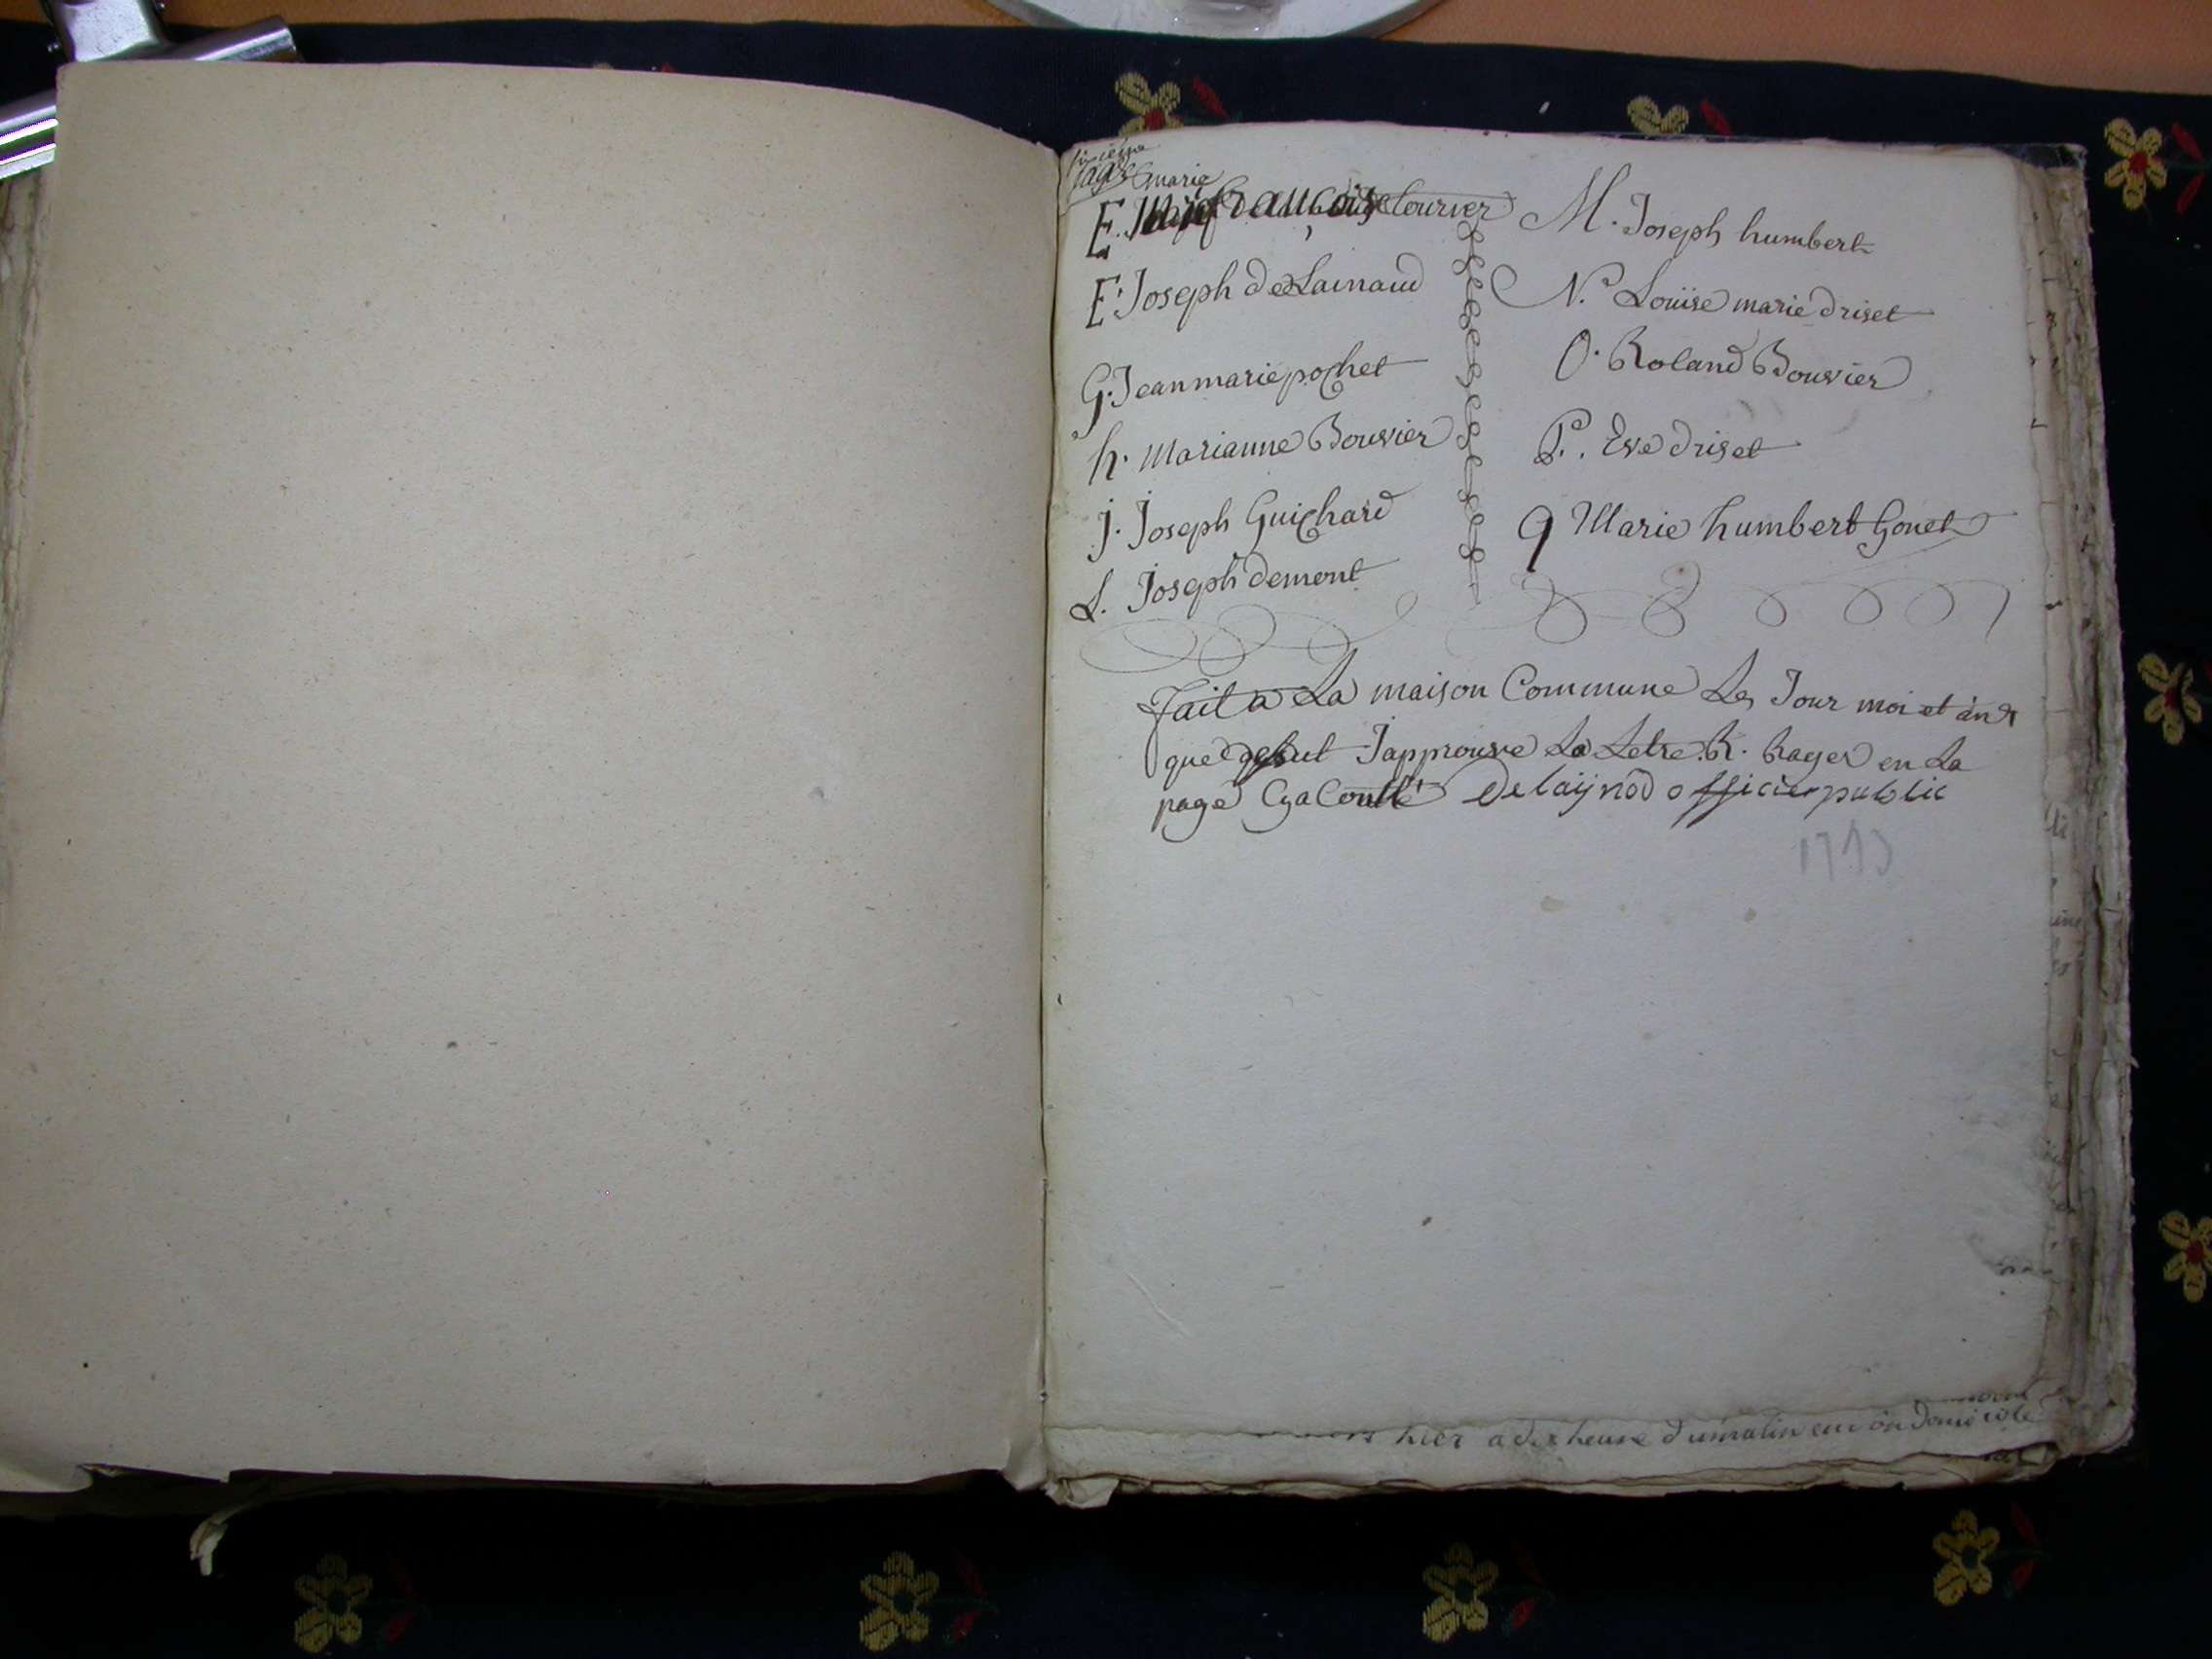 sixième
page
marie
E. françoise tournier
F. Joseph deLainaud
G. Jean marie pochet
h. Marianne Bouvier
J. Joseph Guichard
L. Joseph demont
M. Joseph humbert
N. Louise marie driset
O. Roland Bouvier
P. Eve driset
q Marie humbert Gonet
fait a La maison Commune Les Jour moi et an
que Japprouve La Letre R. Rager en La
page Cy a Coutté Delaijnod officier public
1793
hier a dix heure du matin en son domicile